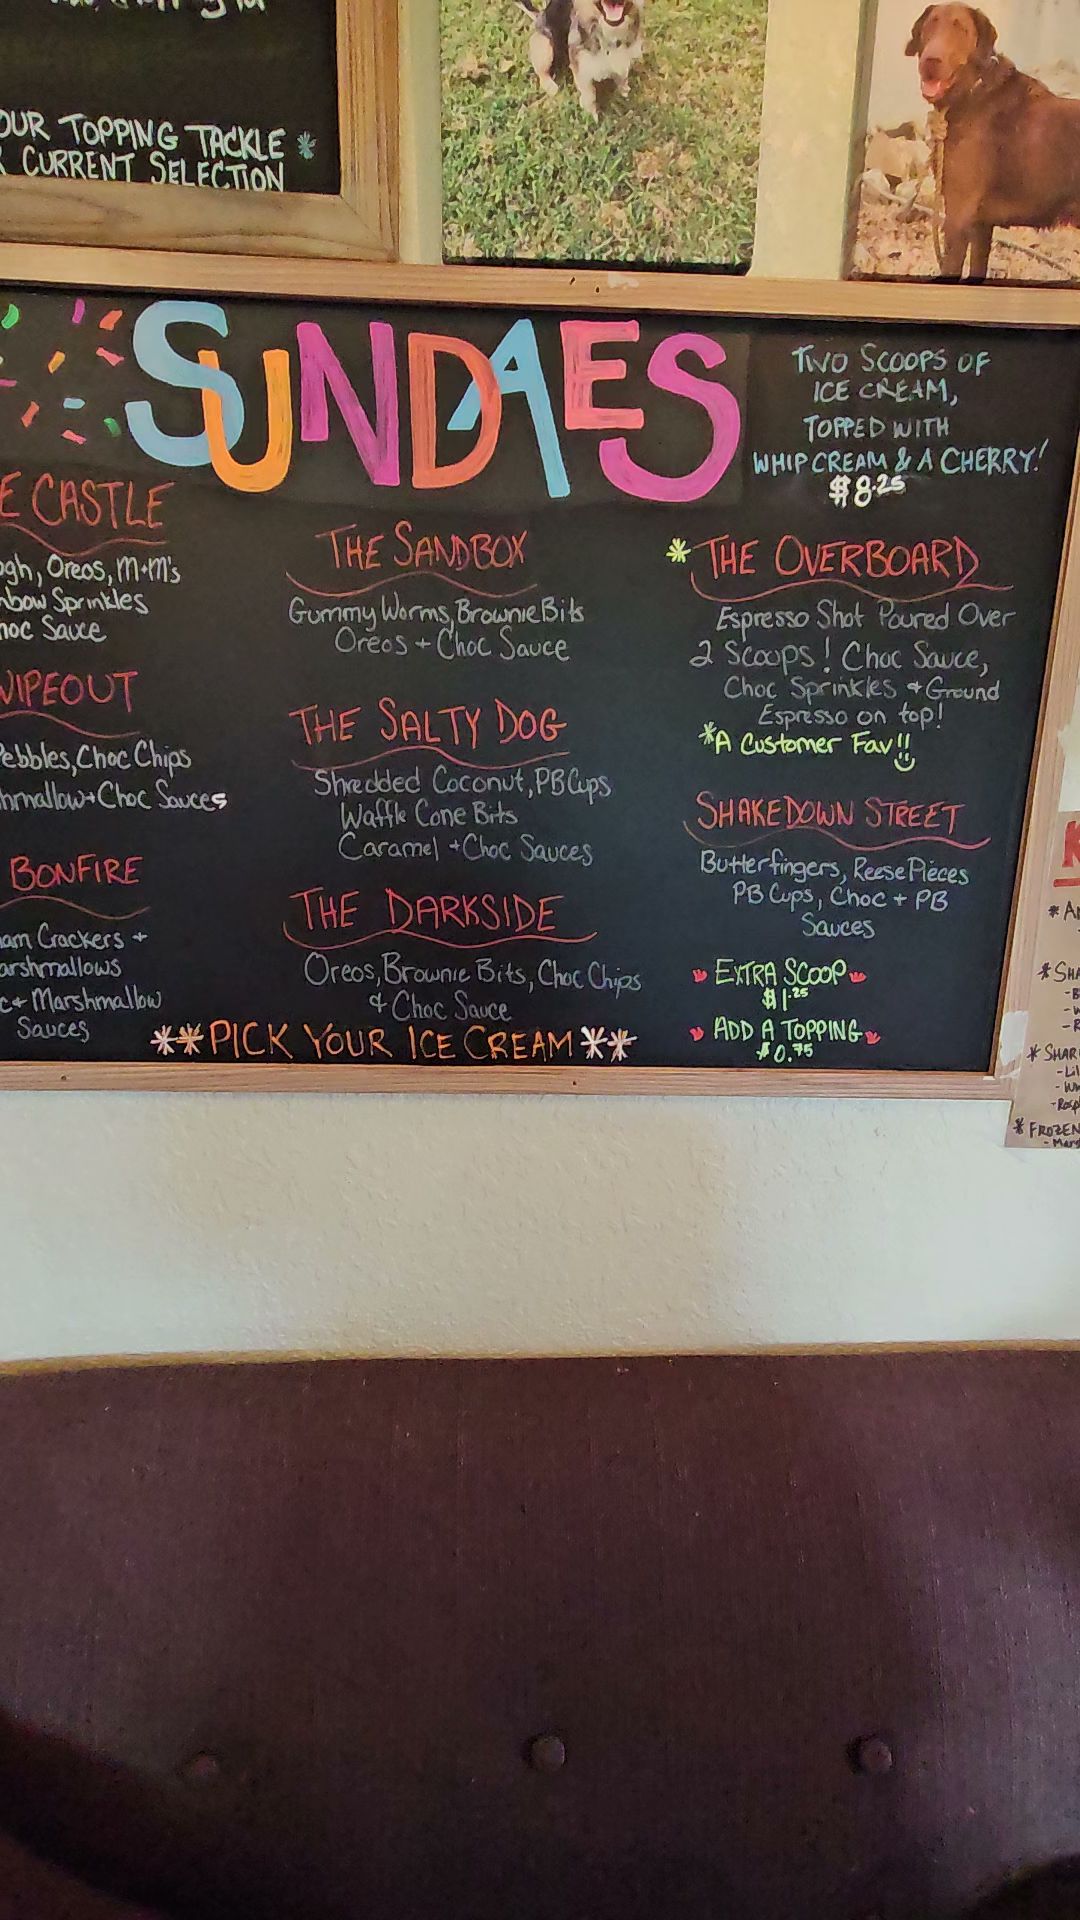 OUR TOPPING TACKLE *
CURRENT SELECTION
SUNDAES
TWO SCOOPS OF
ICE CREAM,
TOPPED WITH
WHIP CREAM & A CHERRY!
$8.25
E CASTLE
ogh, Oreos, M+M's
nbow Sprinkles
hoc Sauce
WIPEOUT
Pebbles, Choc Chips
hmallow + Choc Sauces
BONFIRE
am Crackers +
arshmallows
c + Marshmallow
Sauces
THE SANDBOX
Gummy Worms, Brownie Bits
Oreos + Choc Sauce
THE SALTY DOG
Shredded Coconut, PB Cups
Waffle Cone Bits
Caramel + Choc Sauces
THE DARKSIDE
Oreos, Brownie Bits, Choc Chips
& Choc Sauce
**PICK YOUR ICE CREAM**
* THE OVERBOARD
Espresso Shot Poured Over
2 Scoops! Choc Sauce,
Choc Sprinkles + Ground
Espresso on top!
*A Customer Fav!!
SHAKEDOWN STREET
Butterfingers, Reese Pieces
PB Cups, Choc + PB
Sauces
EXTRA SCOOP
$1.25
ADD A TOPPING
$0.75
K
* SHA
* SHAR
- Lil
* FROZEN